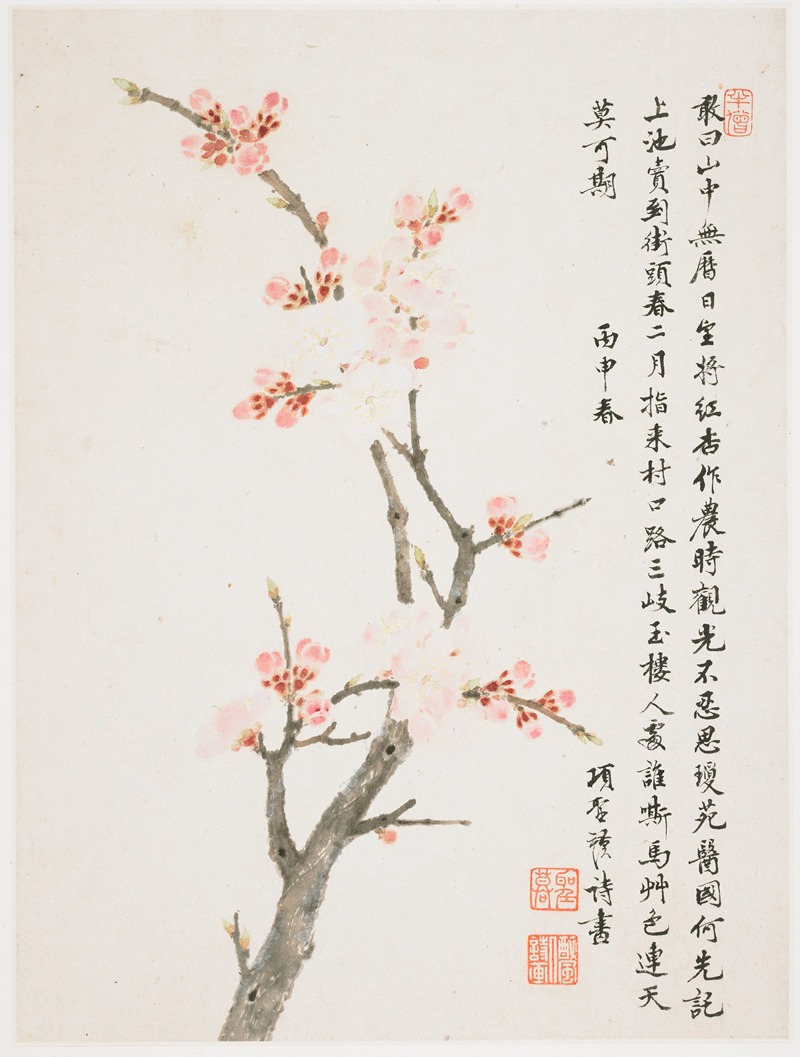 敢曰山中無曆日宜將紅杏作農時觀光不忍思瓊苑醫國何先託
上池賣到街頭春二月指来村口路三岐玉樓人誰嘶馬艸色連天
莫可期 丙申春 項聖謨詩書
聖謩
詩画